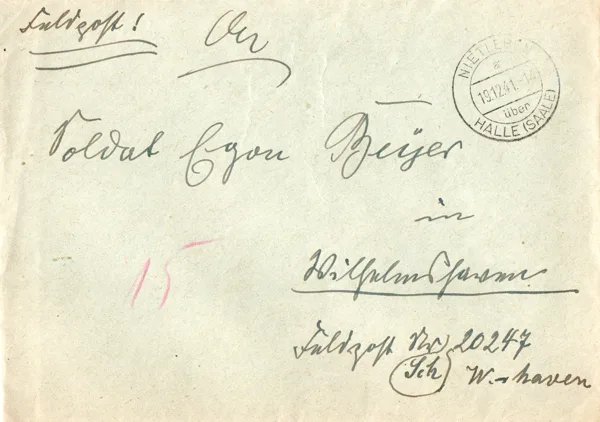 Feldpost!
NIETLEB
19.12.41.
über
HALLE (SAALE)
Soldat Egon Beÿer
in
Wilhelmshaven
15
Feldpost Nr 20247
(Sch) W.-haven